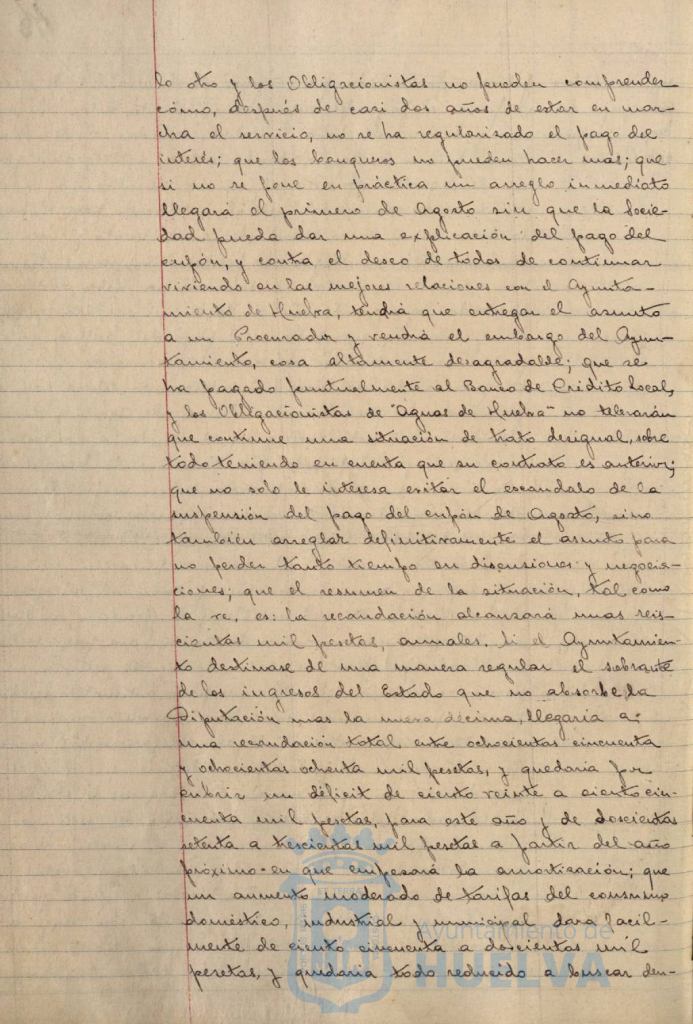 lo otro y los Obligacionistas no pueden comprender
cómo, después de casi dos años de estar en mar-
cha el servicio, no se ha regularizado el pago del
interés; que los banqueros no pueden hacer mas; que
si no se pone en práctica un arreglo inmediato
llegará el primero de Agosto sin que la Socie-
dad pueda dar una explicación del pago del
cupón, y contra el deseo de todos de continuar
viviendo en las mejores relaciones con el Ayunta-
miento de Huelva, tendrá que entregar el asunto
a un Procurador y vendrá el embargo del Ayun-
tamiento, cosa altamente desagradable; que se
ha pagado puntualmente al Banco de Crédito Local,
y los Obligacionistas de "Aguas de Huelva" no tolerarán
que continue una situación de trato desigual, sobre
todo teniendo en cuenta que su contrato es anterior;
que no sólo le interesa evitar el escandalo de la
suspensión del pago del cupón de Agosto, sino
también arreglar definitivamente el asunto para
no perder tanto tiempo en discusiones y negocia-
ciones; que el resumen de la situación, tal como
la ve, es: la recaudación alcanzará unas seis-
cientas mil pesetas, anuales. Si el Ayuntamien-
to destinase de una manera regular el sobrante
de los ingresos del Estado que no absorbe la
Diputación mas la nueva décima, llegaria a
una recaudación total entre ochocientas cincuenta
y ochocientas ochenta mil pesetas, y quedaria por
cubrir un déficit de ciento veinte a ciento cin-
cuenta mil pesetas, para este año y de doscientas
setenta a trescientas mil pesetas a partir del año
próximo en que empezará la amortización; que
un aumento moderado de tarifas del consumo
doméstico, industrial y municipal dara facil-
mente de ciento cincuenta a doscientas mil
pesetas, y quedaria todo reducido a buscar den-
Ayuntamiento de
HUELVA